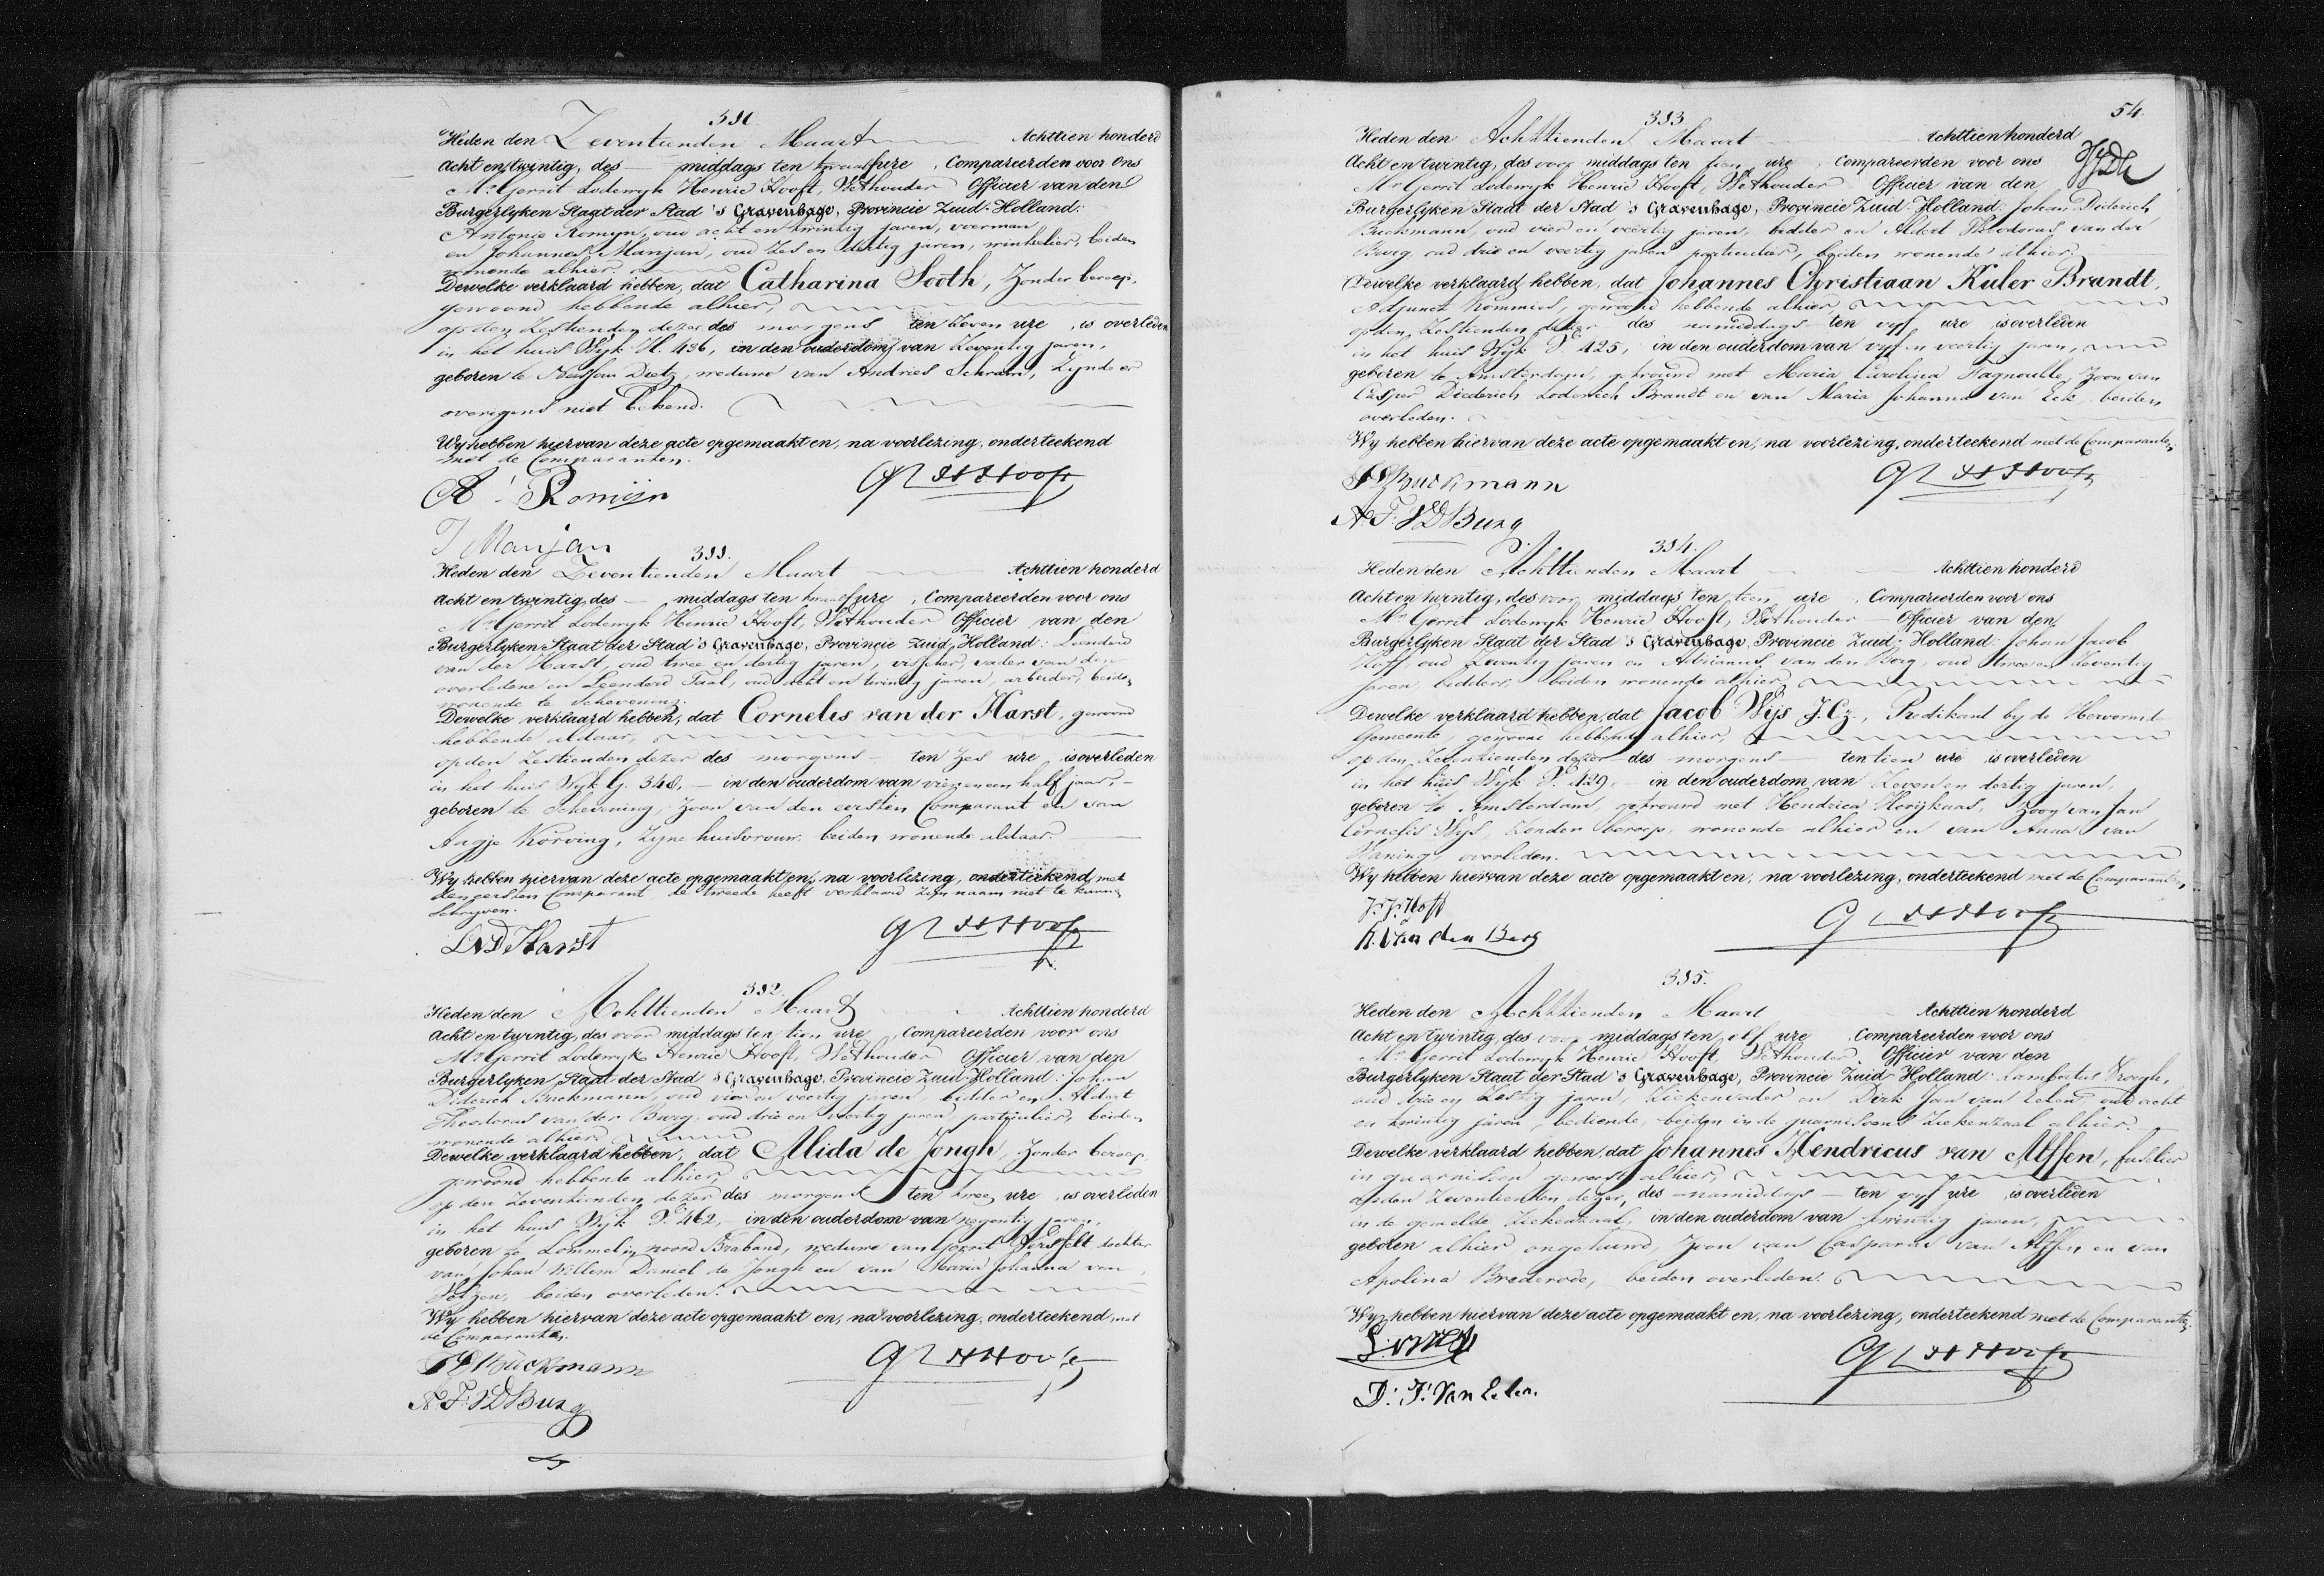 310.
Heden den Zeventienden Maart Achttien honderd
Acht en twyntig, des middags ten twaalf ure, Compareerden voor ons
Mr. Gerrit Lodewyk Henric Hooft, Wethouder Officier van den
Burgerlyken Staat der Stad 's Gravenhage, Provincie Zuid-Holland:
Antonie Romyn, oud acht en twintig jaren, voerman
en Johannes Manjan, oud zes en dertig jaren, winkelier, beiden
wonende alhier
Dewelke verklaard hebben, dat Catharina Sooth, zonder beroep,
gewoond hebbende alhier,
op den Zestienden dezer des morgens ten zeven ure, is overleden
in het huis Wyk H. 436, in den ouderdom van zeventig jaren,
geboren te Nassau Dietz, weduwe van Andries Schram, zynde er
overigens niet bekend.
Wy hebben hiervan deze acte opgemaakt en, na voorlezing, onderteekend
met de Comparanten.
A. Romijn GLHHooft
J Manjan
311.
Heden den Zeventienden Maart Achttien honderd
Acht en twintig, des middags ten twaalf ure, Compareerden voor ons
Mr. Gerrit Lodewyk Henric Hooft, Wethouder Officier van den
Burgerlyken Staat der Stad 's Gravenhage, Provincie Zuid-Holland: Leendert
van der Harst, oud twee en dertig jaren, visscher, vader van den
overledene en Leendert Taal, oud acht en twintig jaren, arbeider, beiden
wonende te Schevening.
Dewelke verklaard hebben, dat Cornelis van der Harst, gewoond
hebbende aldaar,
op den Zestienden dezer des morgens ten zes ure is overleden
in het huis Wyk G. 348, in den ouderdom van vier en een half jaar,
geboren te Schevening, Zoon van den eersten Comparant en van
Aagje Korving, Zyne huisvrouw, beiden wonende aldaar.
Wy hebben hiervan deze acte opgemaakt en, na voorlezing, onderteekend met
den eersten Comparant, de tweede heeft verklaard zijn naam niet te kunnen
schryven.
LVD Harst GLHHooft
312.
Heden den Achttienden Maart Achttien honderd
Acht en twintig, des voor middags ten tien ure, Compareerden voor ons
Mr. Gerrit Lodewyk Henric Hooft, Wethouder Officier van den
Burgerlyken Staat der Stad 's Gravenhage, Provincie Zuid-Holland: Johan
Diderich Buckmann, oud vier en veertig jaren, bidder en Aldert
Theodorus van der Burg, oud drie en veertig jaren, partikulier, beiden
wonende alhier
Dewelke verklaard hebben, dat Alida de Jongh, zonder beroep,
gewoond hebbende alhier,
op den Zeventienden dezer des morgens ten twee ure, is overleden
in het huis Wyk P. 462, in den ouderdom van negentig jaren,
geboren te Lommel in noord Braband, weduwe van Gerrit dochter
van Johan Willem Daniel de Jongh en van Maria Johanna van
beiden overleden.
Wy hebben hiervan deze acte opgemaakt en, na voorlezing, onderteekend met
de Comparanten.
JD Buckmann GLHHooft
A.T. VD Burg
54.
313
Heden den Achttienden Maart Achttien honderd
Acht en twintig, des voor middags ten tien ure, Compareerden voor ons
Mr. Gerrit Lodewyk Henric Hooft, Wethouder Officier van den
Burgerlyken Staat der Stad 's Gravenhage, Provincie Zuid-Holland: Johan Diderich
Buckmann, oud vier en veertig jaren, bidder en Aldert Theodorus van der
Burg, oud drie en veertig jaren, partikulier, beiden wonende alhier,
Dewelke verklaard hebben, dat Johannes Christiaan Kuler Brandt,
Adjunct Kommies, gewoond hebbende alhier,
op den Zestienden dezer des namiddags ten vyf ure is overleden
in het huis Wyk P. 425, in den ouderdom van vyf en veertig jaren,
geboren te Amsterdam, getrouwd met Maria Carolina Magnoulle, Zoon van
Casper Diederich Loderich Brandt en van Maria Johanna van Eck, beiden
overleden.
Wy hebben hiervan deze acte opgemaakt en, na voorlezing, onderteekend met de Comparanten,
JD Buckmann GLHHooft
A.T. VD Burg
314.
Heden den Achttienden Maart Achttien honderd
Acht en twintig, des voor middags ten tien ure, Compareerden voor ons
Mr. Gerrit Lodewyk Henric Hooft, Wethouder Officier van den
Burgerlyken Staat der Stad 's Gravenhage, Provincie Zuid-Holland: Johan Jacob
Hoff, oud Zeventig jaren en Adrianus van den Berg, oud twee en Zeventig
jaren, bidders, beiden wonende alhier,
Dewelke verklaard hebben, dat Jacob Wijs J.Cz., Predikant by de Hervormde
Gemeente, gewoond hebbende alhier,
op den Zeventienden dezer des morgens ten tien ure is overleden
in het huis Wyk P. 129, in den ouderdom van Zeven en dertig jaren,
geboren te Amsterdam, getrouwd met Hendrica Hooijkaas, Zoon van Jan
Cornelis Wijs, Zonder beroep, wonende alhier en van Anna van
Waning, overleden.
Wy hebben hiervan deze acte opgemaakt en, na voorlezing, onderteekend met de Comparanten
J.J. Hoff GLHHooft
A. van den Berg
315.
Heden den Achttienden Maart Achttien honderd
Acht en twintig, des voor middags ten elf ure, Compareerden voor ons
Mr. Gerrit Lodewyk Henric Hooft, Wethouder Officier van den
Burgerlyken Staat der Stad 's Gravenhage, Provincie Zuid-Holland: Lambertus
oud drie en Zestig jaren, Ziekenvader en Dirk Jan van Eelen, oud acht
en twintig jaren, bediende, beiden in de guarnisoens Ziekenzaal alhier.
Dewelke verklaard hebben, dat Johannes Hendricus van Alffen, fuselier
in guarnisoen geweest alhier,
op den Zeventienden dezer, des namiddags ten vyf ure is overleden
in de gemelde Ziekenzaal, in den ouderdom van twintig jaren,
geboren alhier, ongehuwd, Zoon van Casparus van Alffen en van
Apolina Brederode, beiden overleden.
Wy hebben hiervan deze acte opgemaakt en, na voorlezing, onderteekend met de Comparanten.
GLHHooft
D. J. Van Eelen.